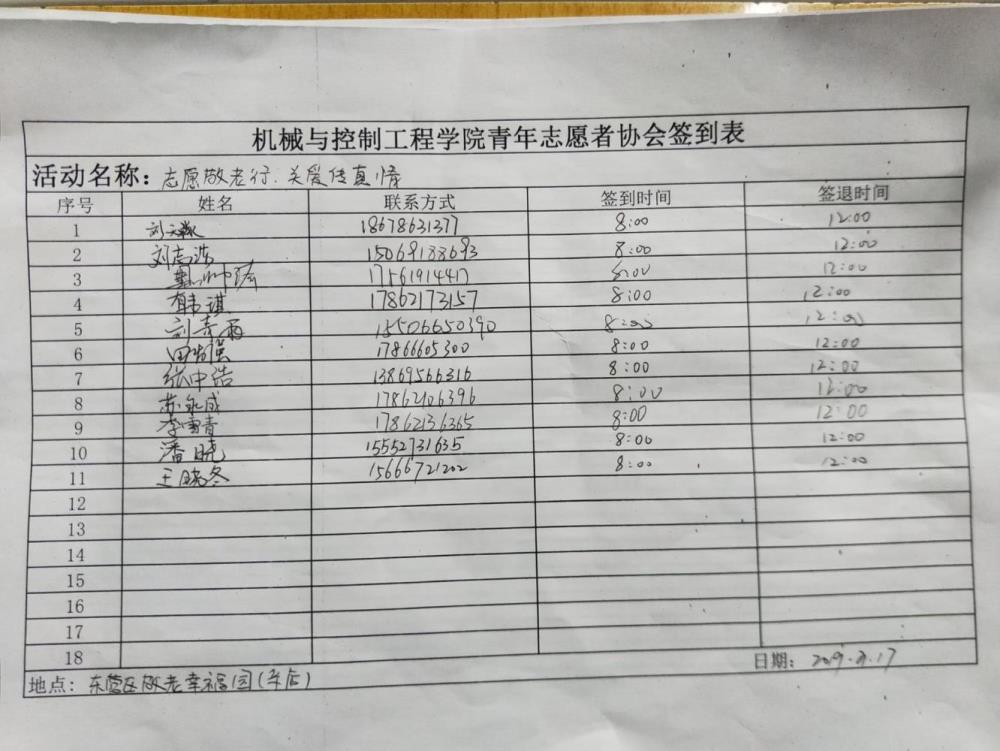 机械与控制工程学院青年志愿者协会签到表
活动名称：志愿敬老行.关爱传真情
序号 姓名 联系方式 签到时间 签退时间
1 刘 18678631377 8:00 12:00
2 刘志浩 15069188693 8:00 12:00
3 8:00 12:00
4 韩琪 17862173157 8:00 12:00
5 刘奇雨 15506650390 8:00 12:00
6 田 强 17866605300 8:00 12:00
7 张中浩 13869566316 8:00 12:00
8 苏永成 17862106396 8:00 12:00
9 李雪青 17862136365 8:00 12:00
10 潘晓 15552731635 8:00 12:00
11 王晓冬 15666721202 8:00 12:00
12
13
14
15
16
17
18
日期：
地点：东营区敬老幸福园(辛店)